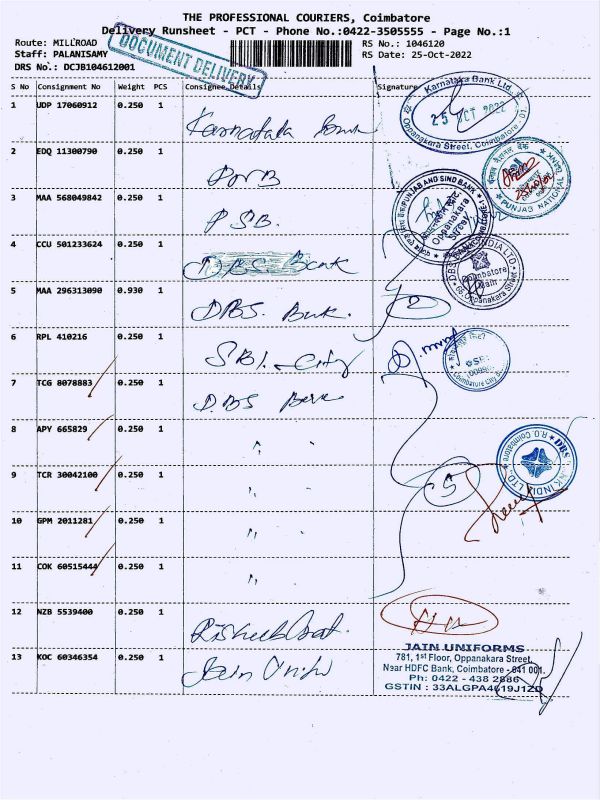 THE PROFESSIONAL COURIERS, Coimbatore
Delivery Runsheet - PCT - Phone No.:0422-3505555 - Page No.:1
Route: MILLROAD
RS No.: 1046120
Staff: PALANISAMY
RS Date: 25-Oct-2022
DRS No.: DCJB104612001
DOCUMENT DELIVERY
S No Consignment No Weight PCS Consignee Details Signature
1 UDP 17060912 0.250 1 Karnataka Bank
Karnataka Bank Ltd.,
25 OCT 2022
Oppanakara Street, Coimbatore - 01.
2 EDQ 11300790 0.250 1 PNB
PUNJAB NATIONAL BANK
3 MAA 568049842 0.250 1 PSB.
PUNJAB AND SIND BANK
Oppanakara
Street
4 CCU 501233624 0.250 1 DBS Bank
DBS BANK INDIA LTD.
Coimbatore
Main
66 Oppanakara Street
5 MAA 296313090 0.930 1 DBS. Bank.
6 RPL 410216 0.250 1 SBI. City
SBI
Coimbatore City
7 TCG 8078883 0.250 1 DBS Bank
8 APY 665829 0.250 1 " "
R.O. Coimbatore
DBS BANK INDIA LTD.
9 TCR 30042100 0.250 1 " "
10 GPM 2011281 0.250 1 " "
11 COK 60515444 0.250 1 "
12 NZB 5539400 0.250 1
13 KOC 60346354 0.250 1 Jain Unifo
JAIN UNIFORMS
781, 1st Floor, Oppanakara Street,
Near HDFC Bank, Coimbatore - 641 001.
Ph: 0422 - 438 2886
GSTIN : 33ALGPA4619J1ZD